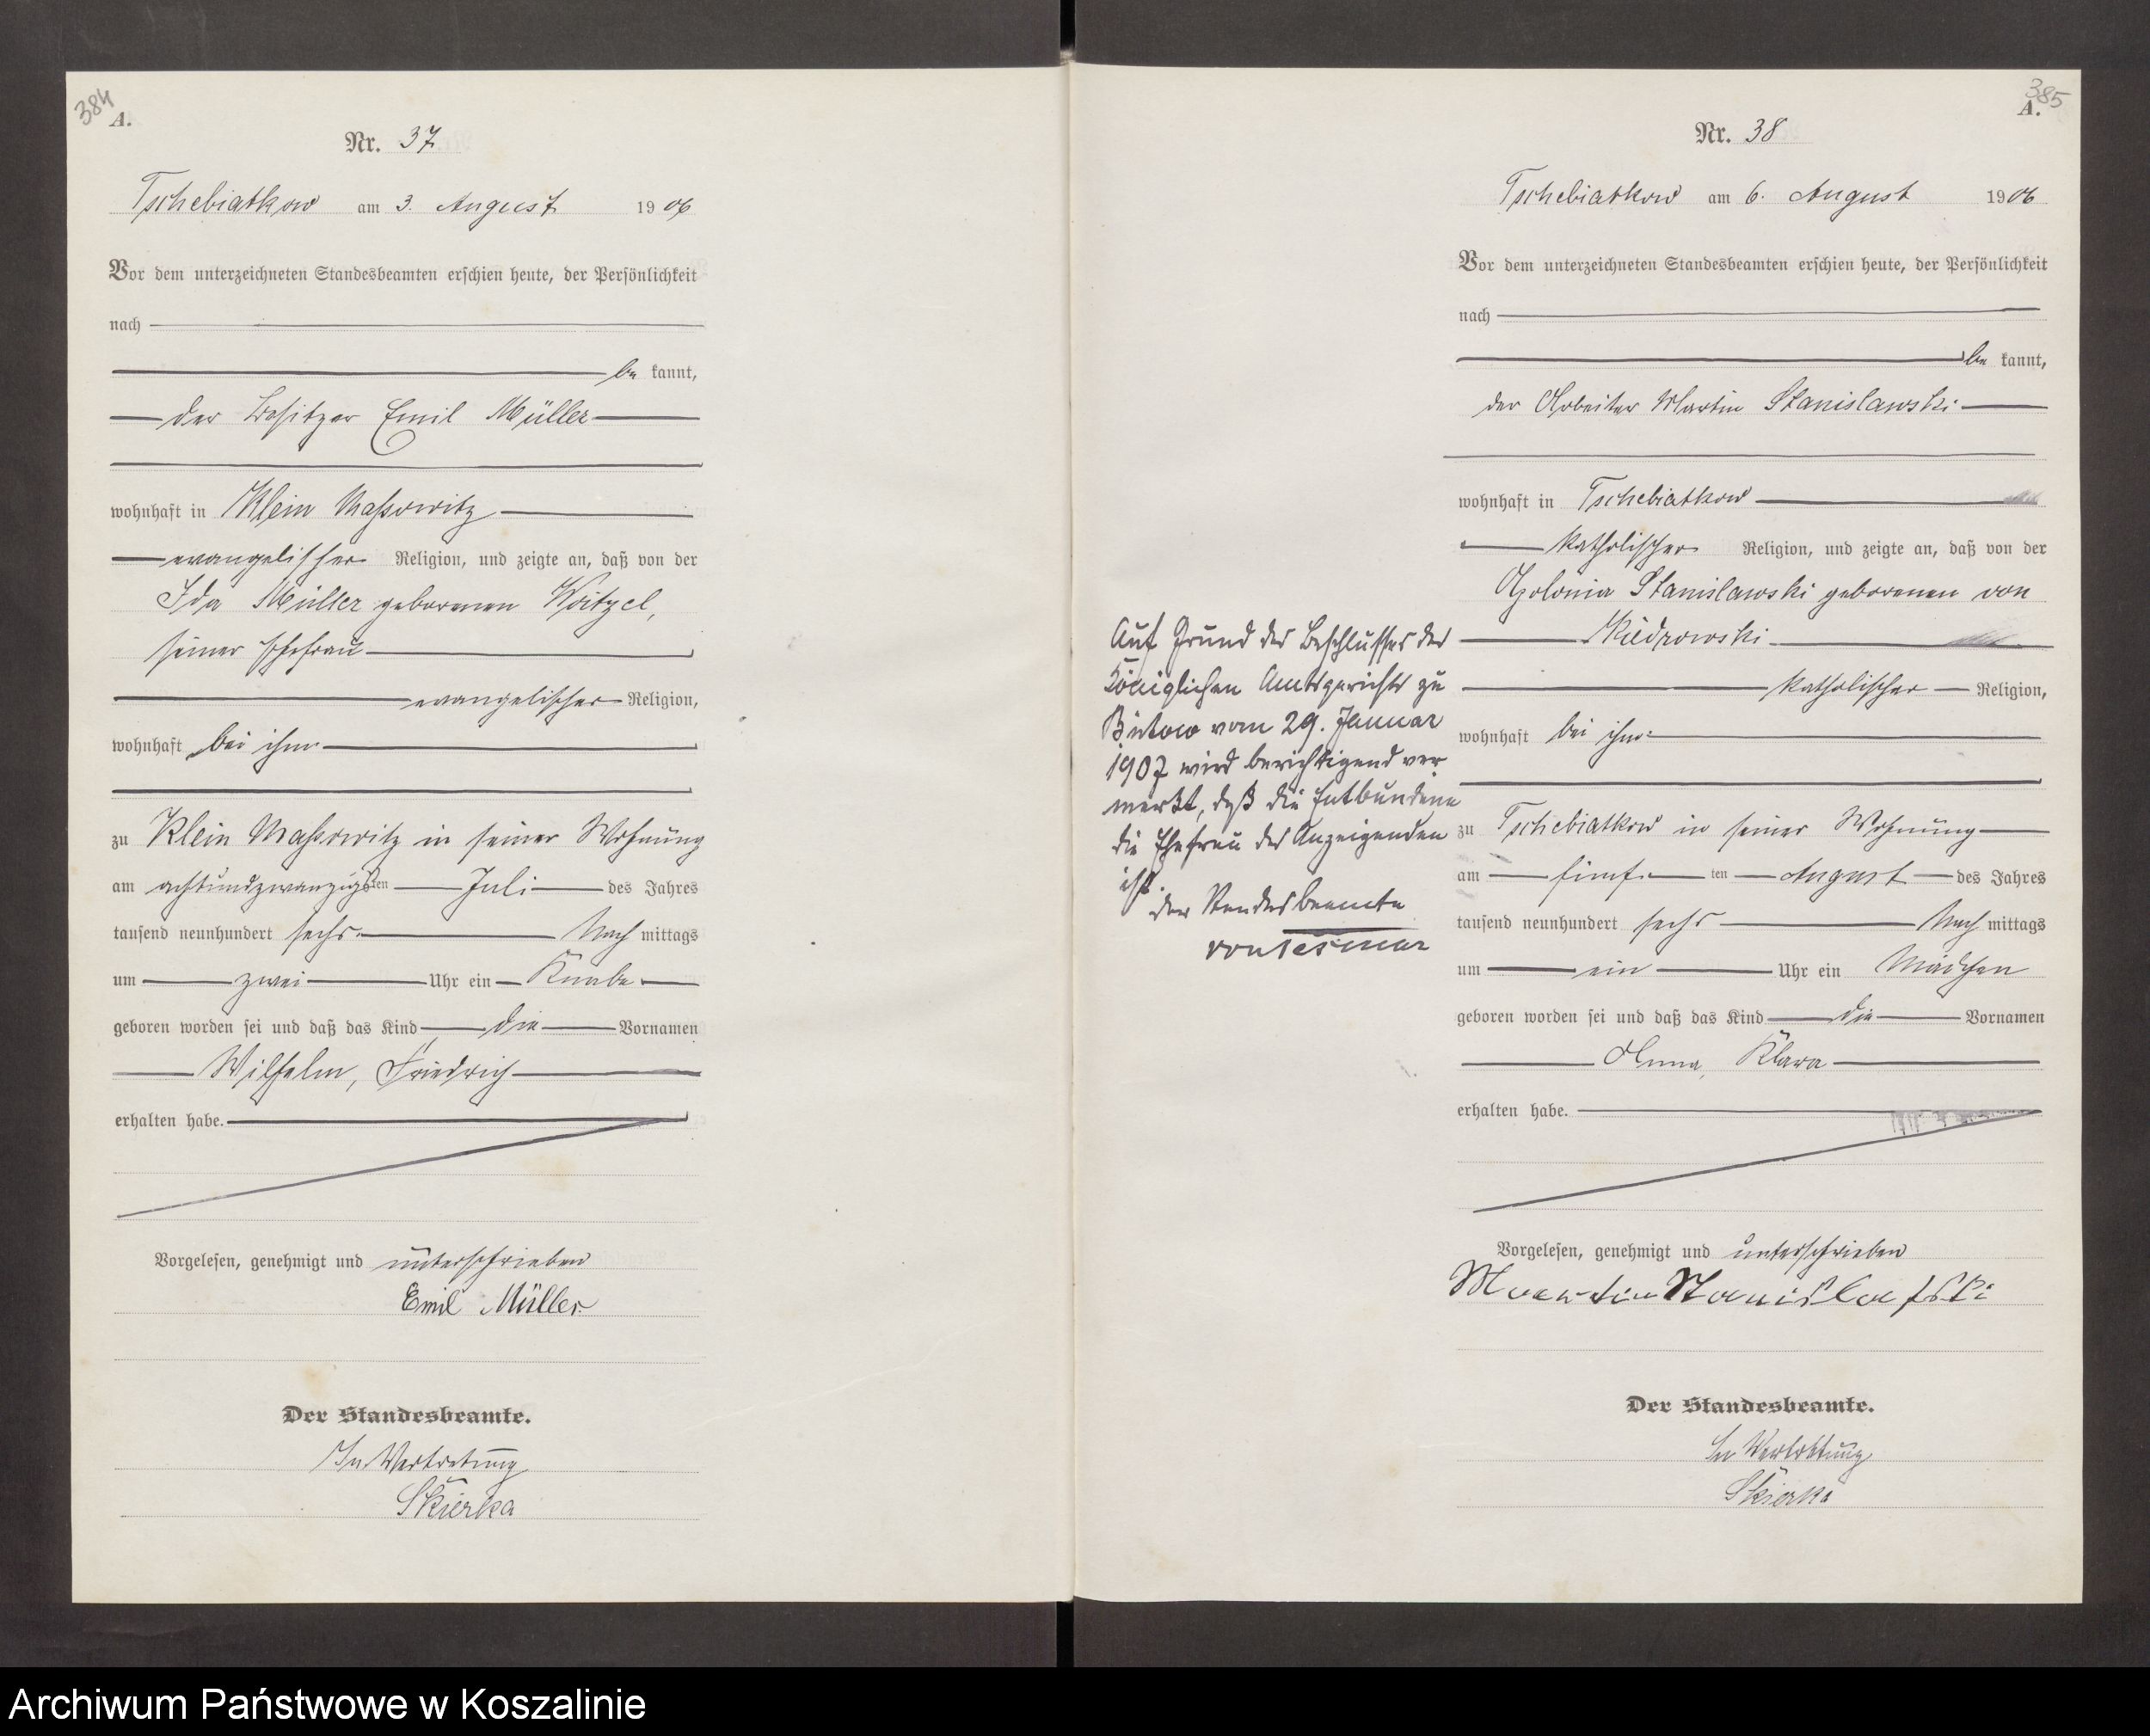 384
A.
Nr. 37
Tschebiatkow am 3. August 1906
Vor dem unterzeichneten Standesbeamten erschien heute, der Persönlichkeit
nach
be kannt,
der Besitzer Emil Müller
wohnhaft in Klein Massowitz
evangelischer Religion, und zeigte an, daß von der
Ida Müller geborenen Woitzel,
seiner Ehefrau
evangelischer Religion,
wohnhaft bei ihm
zu Klein Massowitz in seiner Wohnung
am achtundzwanzigsten Juli des Jahres
tausend neunhundert sechs Nach mittags
um zwei Uhr ein Knabe
geboren worden sei und daß das Kind die Vornamen
Wilhelm, Friedrich
erhalten habe.
Vorgelesen, genehmigt und unterschrieben
Emil Müller
Der Standesbeamte.
In Vertretung
Skierka
385
A.
Nr. 38
Tschebiatkow am 6. August 1906
Vor dem unterzeichneten Standesbeamten erschien heute, der Persönlichkeit
nach
be kannt,
der Arbeiter Martin Stanislawski
wohnhaft in Tschebiatkow
katholischer Religion, und zeigte an, daß von der
Apolonia Stanislawski geborenen von
Kiedrowski
katholischer Religion,
wohnhaft bei ihm
zu Tschebiatkow in seiner Wohnung
am fünf ten August des Jahres
tausend neunhundert sechs Nach mittags
um ein Uhr ein Mädchen
geboren worden sei und daß das Kind die Vornamen
Anna, Klara
erhalten habe.
Vorgelesen, genehmigt und unterschrieben
Martin Stanislafski
Der Standesbeamte.
In Vertretung
Skierka
Auf Grund des Beschlusses des
Königlichen Amtsgerichts zu
Bütow vom 29. Januar
1907 wird berichtigend ver
merkt, daß die Entbundene
die Ehefrau des Anzeigenden
ist.
Der Standesbeamte
von Tesmar
Archiwum Państwowe w Koszalinie